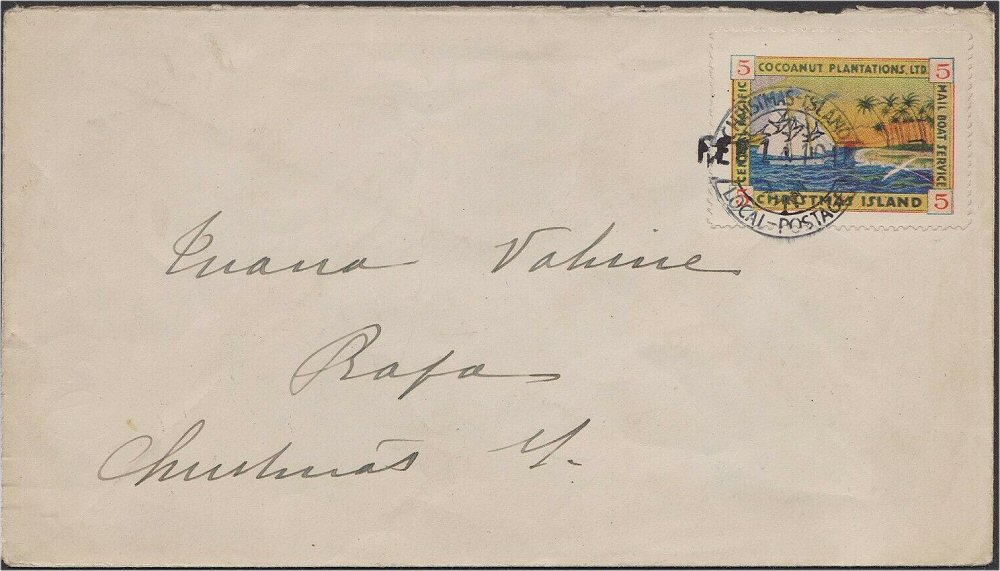 5 COCOANUT PLANTATIONS, LTD. 5
CENTRAL PACIFIC
MAIL BOAT SERVICE
5 CHRISTMAS ISLAND 5
CHRISTMAS-ISLAND
LOCAL-POSTAGE
Vahine
Rafa
Christmas